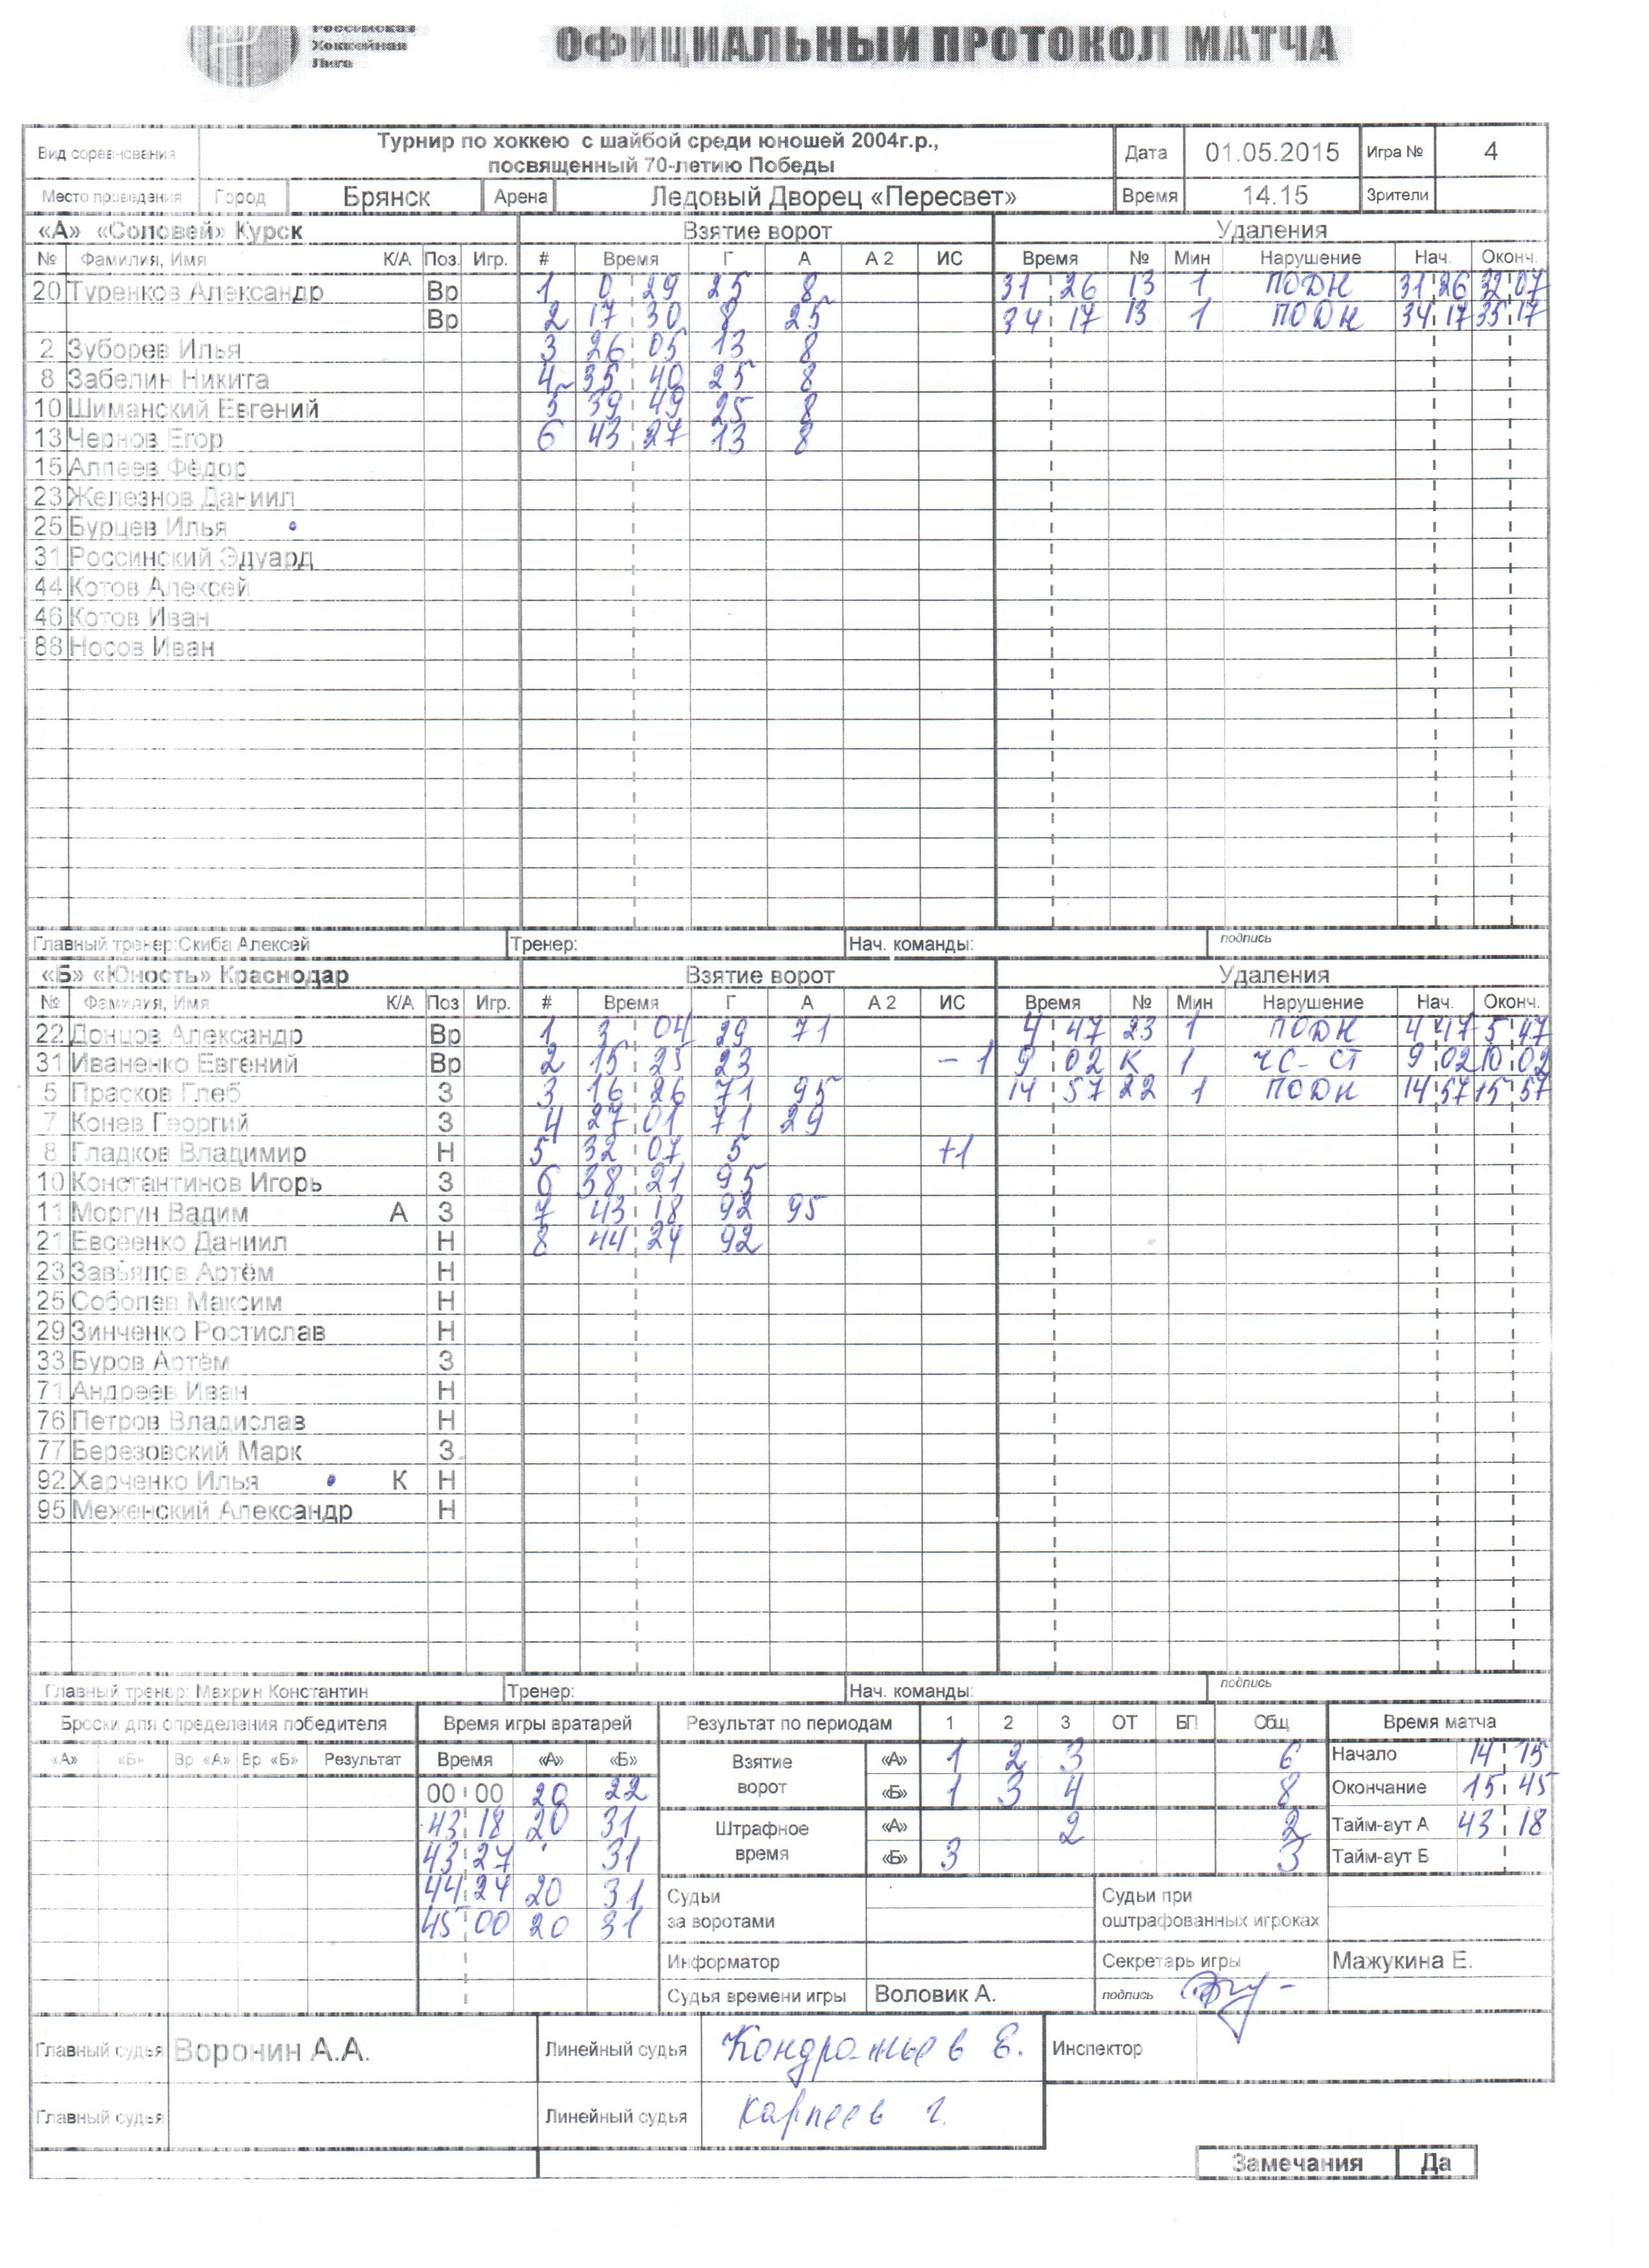 Российская
Хоккейная
Лига
ОФИЦИАЛЬНЫЙ ПРОТОКОЛ МАТЧА
Вид соревнования Турнир по хоккею с шайбой среди юношей 2004г.р., посвященный 70-летию Победы Дата 01.05.2015 Игра № 4
Место проведения Город Брянск Арена Ледовый Дворец «Пересвет» Время 14.15 Зрители
«А» «Соловей» Курск Взятие ворот Удаления
№ Фамилия, Имя К/А Поз. Игр. # Время Г А А 2 ИС Время № Мин Нарушение Нач. Оконч.
20 Туренков Александр Вр 1 0 29 25 8 31 26 13 1 ПОДН 31 26 32 07
Вр 2 17 30 8 25 34 17 13 1 ПОДН 34 17 35 17
2 Зуборев Илья 3 26 05 13 8
8 Забелин Никита 4 35 40 25 8
10 Шиманский Евгений 5 39 49 25 8
13 Чернов Егор 6 43 27 13 8
15 Алпеев Фёдор
23 Железнов Даниил
25 Бурцев Илья
31 Россинский Эдуард
44 Котов Алексей
46 Котов Иван
88 Носов Иван
Главный тренер:Скиба Алексей Тренер: Нач. команды: подпись
«Б» «Юность» Краснодар Взятие ворот Удаления
№ Фамилия, Имя К/А Поз Игр. # Время Г А А 2 ИС Время № Мин Нарушение Нач. Оконч.
22 Донцов Александр Вр 1 3 04 29 71 4 47 23 1 ПОДН 4 47 5 47
31 Иваненко Евгений Вр 2 15 25 23 -1 9 02 К 1 ЧС-СТ 9 02 10 02
5 Прасков Глеб З 3 16 26 71 95 14 57 22 1 ПОДН 14 57 15 57
7 Конев Георгий З 4 27 01 71 29
8 Гладков Владимир Н 5 32 07 5 +1
10 Константинов Игорь З 6 38 21 95
11 Моргун Вадим А З 7 43 18 92 95
21 Евсеенко Даниил Н 8 44 24 92
23 Завьялов Артём Н
25 Соболев Максим Н
29 Зинченко Ростислав Н
33 Буров Артём З
71 Андреев Иван Н
76 Петров Владислав Н
77 Березовский Марк З
92 Харченко Илья К Н
95 Меженский Александр Н
Главный тренер: Махрин Константин Тренер: Нач. команды: подпись
Броски для определения победителя Время игры вратарей Результат по периодам 1 2 3 ОТ БП Общ Время матча
«А» «Б» Вр «А» Вр «Б» Результат Время «А» «Б» Взятие ворот «А» 1 2 3 6 Начало 14 15
00 00 20 22 «Б» 1 3 4 8 Окончание 15 45
43 18 20 31 Штрафное время «А» 2 2 Тайм-аут А 43 18
43 27 31 «Б» 3 3 Тайм-аут Б
44 24 20 31 Судьи за воротами Судьи при оштрафованных игроках
45 00 20 31
Информатор Секретарь игры Мажукина Е.
Судья времени игры Воловик А. подпись
Главный судья Воронин А.А. Линейный судья Кондратьев Е. Инспектор
Главный судья Линейный судья Карпеев Г.
Замечания Да